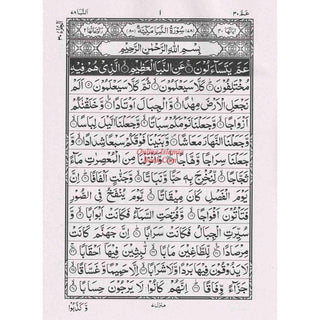 عم ٣٠ ١ النبا ٧٨
سُوْرَةُ النَّبَاِ مَكِّيَّةٌ
بِسْمِ اللّٰهِ الرَّحْمٰنِ الرَّحِيْمِ
عَمَّ يَتَسَآءَلُوْنَ ۝ عَنِ النَّبَاِ الْعَظِيْمِ ۝ الَّذِیْ هُمْ فِيْهِ
مُخْتَلِفُوْنَ ۝ كَلَّا سَيَعْلَمُوْنَ ۝ ثُمَّ كَلَّا سَيَعْلَمُوْنَ ۝ اَلَمْ
نَجْعَلِ الْاَرْضَ مِهٰدًا ۝ وَّالْجِبَالَ اَوْتَادًا ۝ وَّخَلَقْنٰكُمْ
اَزْوَاجًا ۝ وَّجَعَلْنَا نَوْمَكُمْ سُبَاتًا ۝ وَّجَعَلْنَا الَّيْلَ لِبَاسًا ۝
وَّجَعَلْنَا النَّهَارَ مَعَاشًا ۝ وَّبَنَيْنَا فَوْقَكُمْ سَبْعًا شِدَادًا ۝
وَّجَعَلْنَا سِرَاجًا وَّهَّاجًا ۝ وَّاَنْزَلْنَا مِنَ الْمُعْصِرٰتِ مَآءً
ثَجَّاجًا ۝ لِّنُخْرِجَ بِهٖ حَبًّا وَّنَبَاتًا ۝ وَّجَنّٰتٍ اَلْفَافًا ۝ اِنَّ
يَوْمَ الْفَصْلِ كَانَ مِيْقَاتًا ۝ يَّوْمَ يُنْفَخُ فِی الصُّوْرِ
فَتَاْتُوْنَ اَفْوَاجًا ۝ وَّفُتِحَتِ السَّمَآءُ فَكَانَتْ اَبْوَابًا ۝
وَّسُيِّرَتِ الْجِبَالُ فَكَانَتْ سَرَابًا ۝ اِنَّ جَهَنَّمَ كَانَتْ
مِرْصَادًا ۝ لِّلطَّاغِيْنَ مَاٰبًا ۝ لّٰبِثِيْنَ فِيْهَآ اَحْقَابًا ۝
لَا يَذُوْقُوْنَ فِيْهَا بَرْدًا وَّلَا شَرَابًا ۝ اِلَّا حَمِيْمًا وَّغَسَّاقًا ۝
جَزَآءً وِّفَاقًا ۝ اِنَّهُمْ كَانُوْا لَا يَرْجُوْنَ حِسَابًا ۝
وَّكَذَّبُوْا
منزل ٧